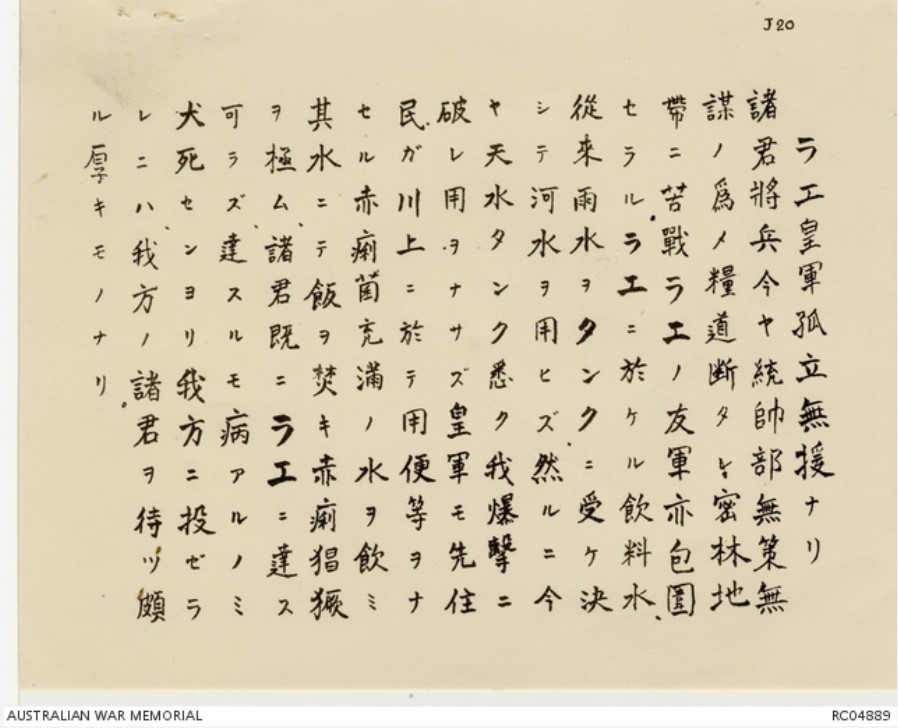 J20
ラエ皇軍孤立無援ナリ
諸君將兵今ヤ統帥部無策無
謀ノ爲メ糧道断タレ密林地
帶ニ苦戰ラエノ友軍亦包圍
セラル。ラエニ於ケル飲料水、
從來雨水ヲタンクニ受ケ決
シテ河水ヲ用ヒズ、然ルニ今
ヤ天水タンク悉ク我爆擊ニ
破レ用ヲナサズ皇軍モ先住
民ガ川上ニ於テ用便等ヲナ
セル赤痢菌充滿ノ水ヲ飲ミ
其水ニテ飯ヲ焚キ赤痢猖獗
ヲ極ム、諸君既ニラエニ達ス
可ラズ、達スルモ病アルノミ
犬死センヨリ我方ニ投ゼラ
レニハ、我方ノ諸君ヲ待ツ頗
ル厚キモノナリ。
AUSTRALIAN WAR MEMORIAL
RC04889